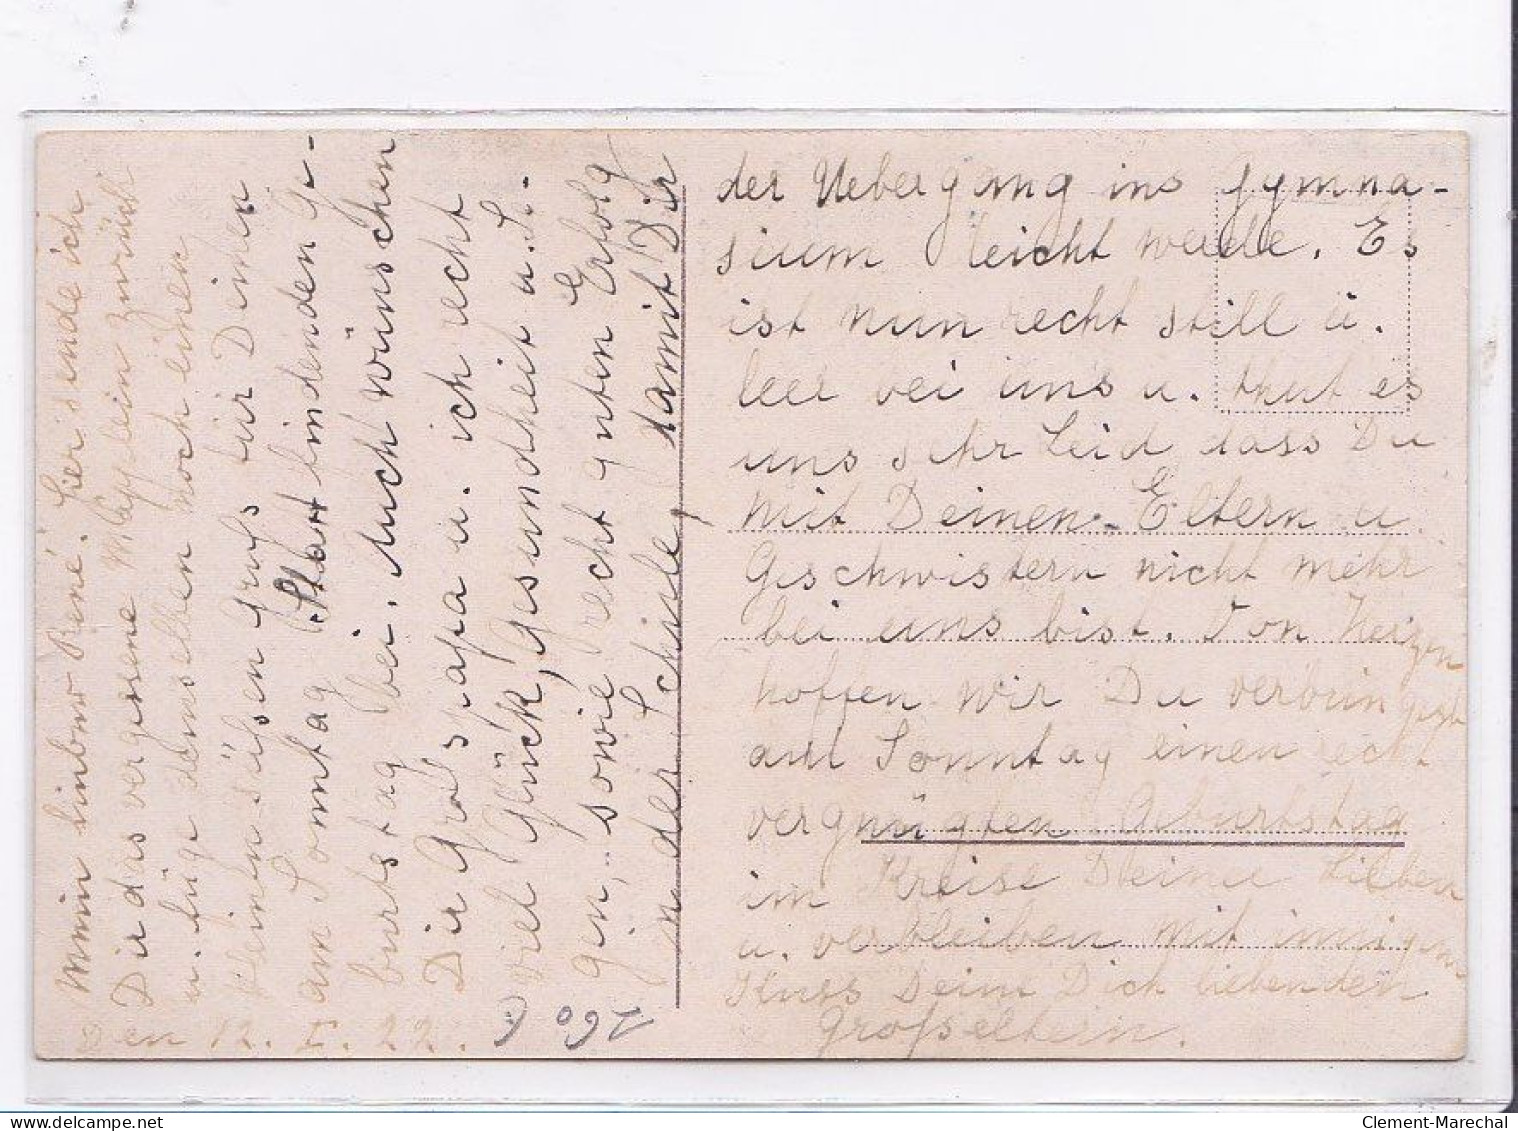 Den 12. I. 22.
Mein lieber René. Hier sende ich
Dir das vergessene Mäpplein zurück
u. füge demselben noch einen
kleinen süßen Gruß für Deinen
am Sonntag Statt findenden Ge-
burtstag bei. Auch wünschen
Dir Großpapa u. ich recht
viel Glück, Gesundheit u. S.-
gen, sowie recht guten Erfolg
in der Schule, damit Dir
der Uebergang ins Gymna-
sium leicht werde. Es
ist nun recht still u.
leer bei uns u. thut es
uns sehr Leid dass Du
mit Deinen Eltern u.
Geschwistern nicht mehr
bei uns bist. Von Herzen
hoffen wir Du verbringest
auf Sonntag einen recht
vergnügten Geburtstag
im Kreise Deiner Lieben
u. verbleiben mit innigem
Kuss Deine Dich liebenden
Großeltern.
160 F
Clement-Marechal